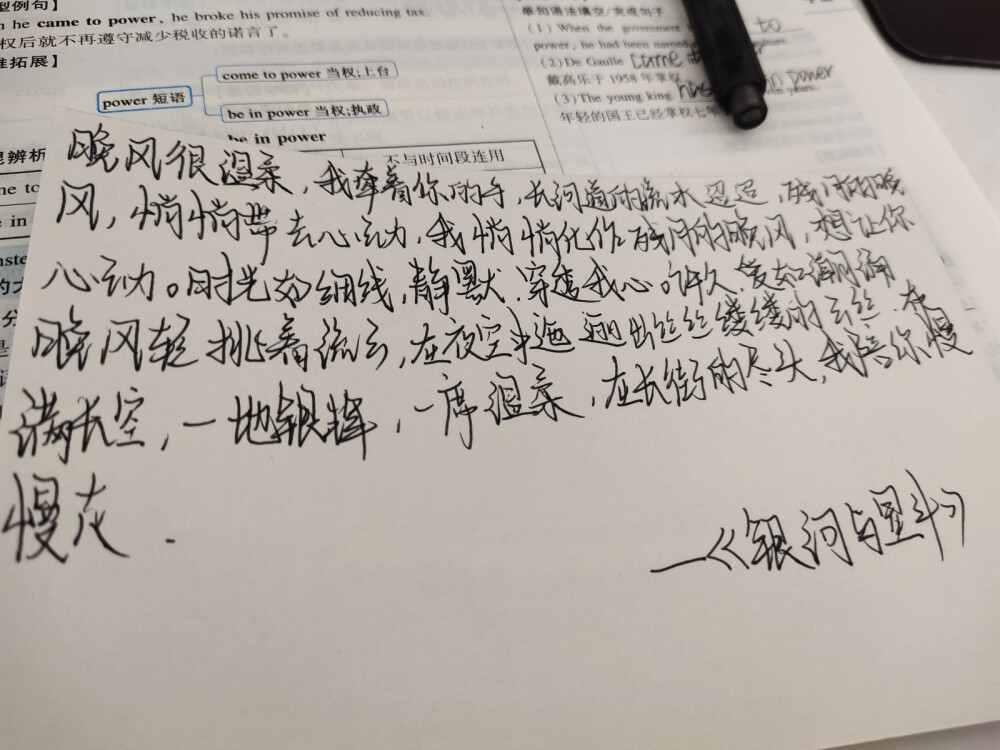 型例句】
n he came to power, he broke his promise of reducing tax.
权后就不再遵守减少税收的诺言了。
维拓展】
come to power 当权;上台
power 短语
be in power 当权;执政
be in power
混辨析
不与时间段连用
me to
e in
nste
的大
分
是
单句语法填空/完成句子
(1) When the government to
power, he had been named
(2) De Gaulle came
戴高乐于 1958 年掌权
(3) The young king has in power years.
年轻的国王已经掌权七年
晚风很温柔，我牵着你的手，长河道的晚水迢迢，残月的晚
风，悄悄带去心动，我悄悄化作残月的晚风，想让你
心动。时光如细线，静默穿透我心。许久，爱如潮
晚风轻挑着流云，在夜空中逦迤出丝丝缕缕的云丝，
满长空，一地银辉，一席温柔，在长街的尽头，我陪你慢
慢走.
—《银河与星斗》